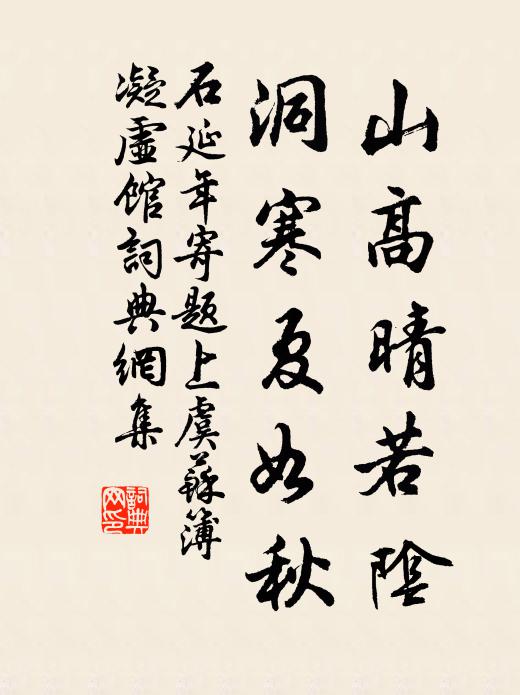 山高晴若陰
洞寒夏如秋
石延年寄題上虞蘇簿
凝虛館詞典網集
詞典网印